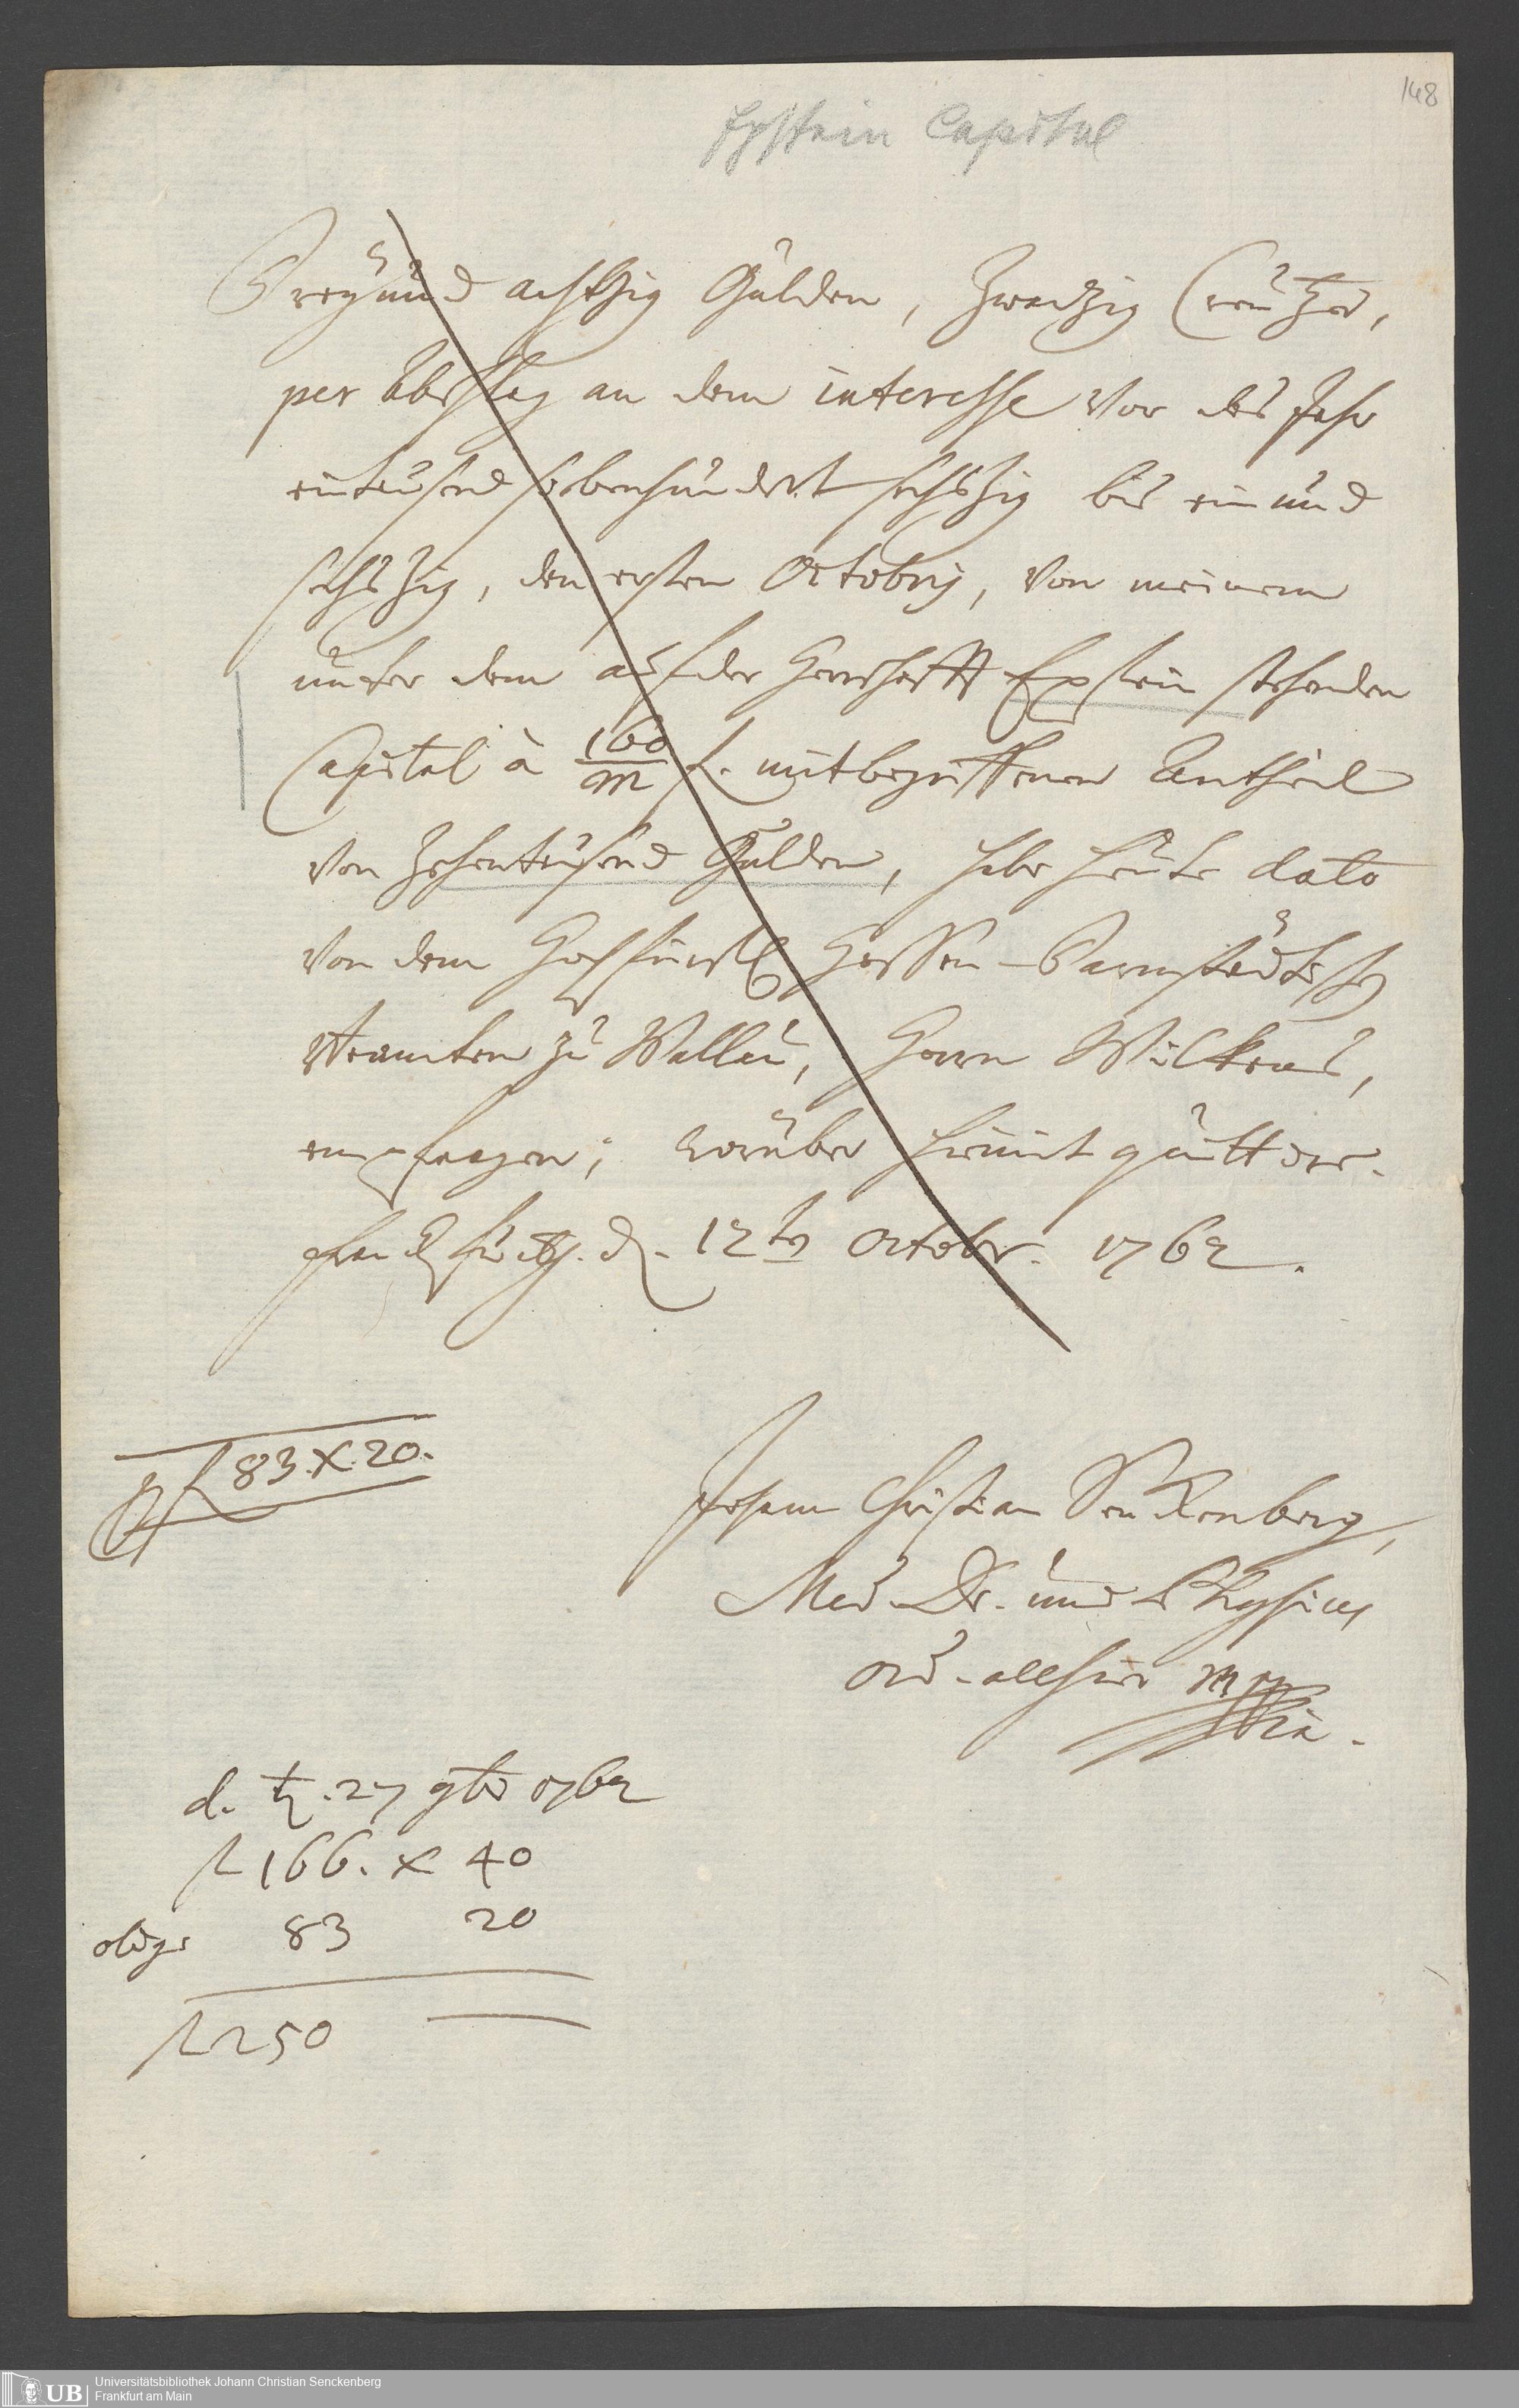 148
Epstein Capital
Dreyund achtzig Gulden, Zwanzig Creutzer,
per Abschlag an dem interesse vor das Jahr
eintausend siebenhundert sechszig bis ein und
sechszig, den ersten Octobris, von meinem
unter dem auf der Herrschafft Epstein stehenden
Capital à 160/m f. mitbegriffenen Antheil
von Zehentausend Gulden, habe heute dato
von dem Hochfürstl. Hessen-Darmstädtisch
Beamten zu Wallau, Herrn Wilckens,
empfangen; worüber hiemit quittire.
d. 12ten Octobr. 1762.
f 83. x. 20.
Johann Christian Senckenberg,
Med. Dr. und Physicus
ord. allhier mppria.
d. 27 9br 1762
f 166. x 40
obige 83 20
f 250 —
UB Universitätsbibliothek Johann Christian Senckenberg
Frankfurt am Main